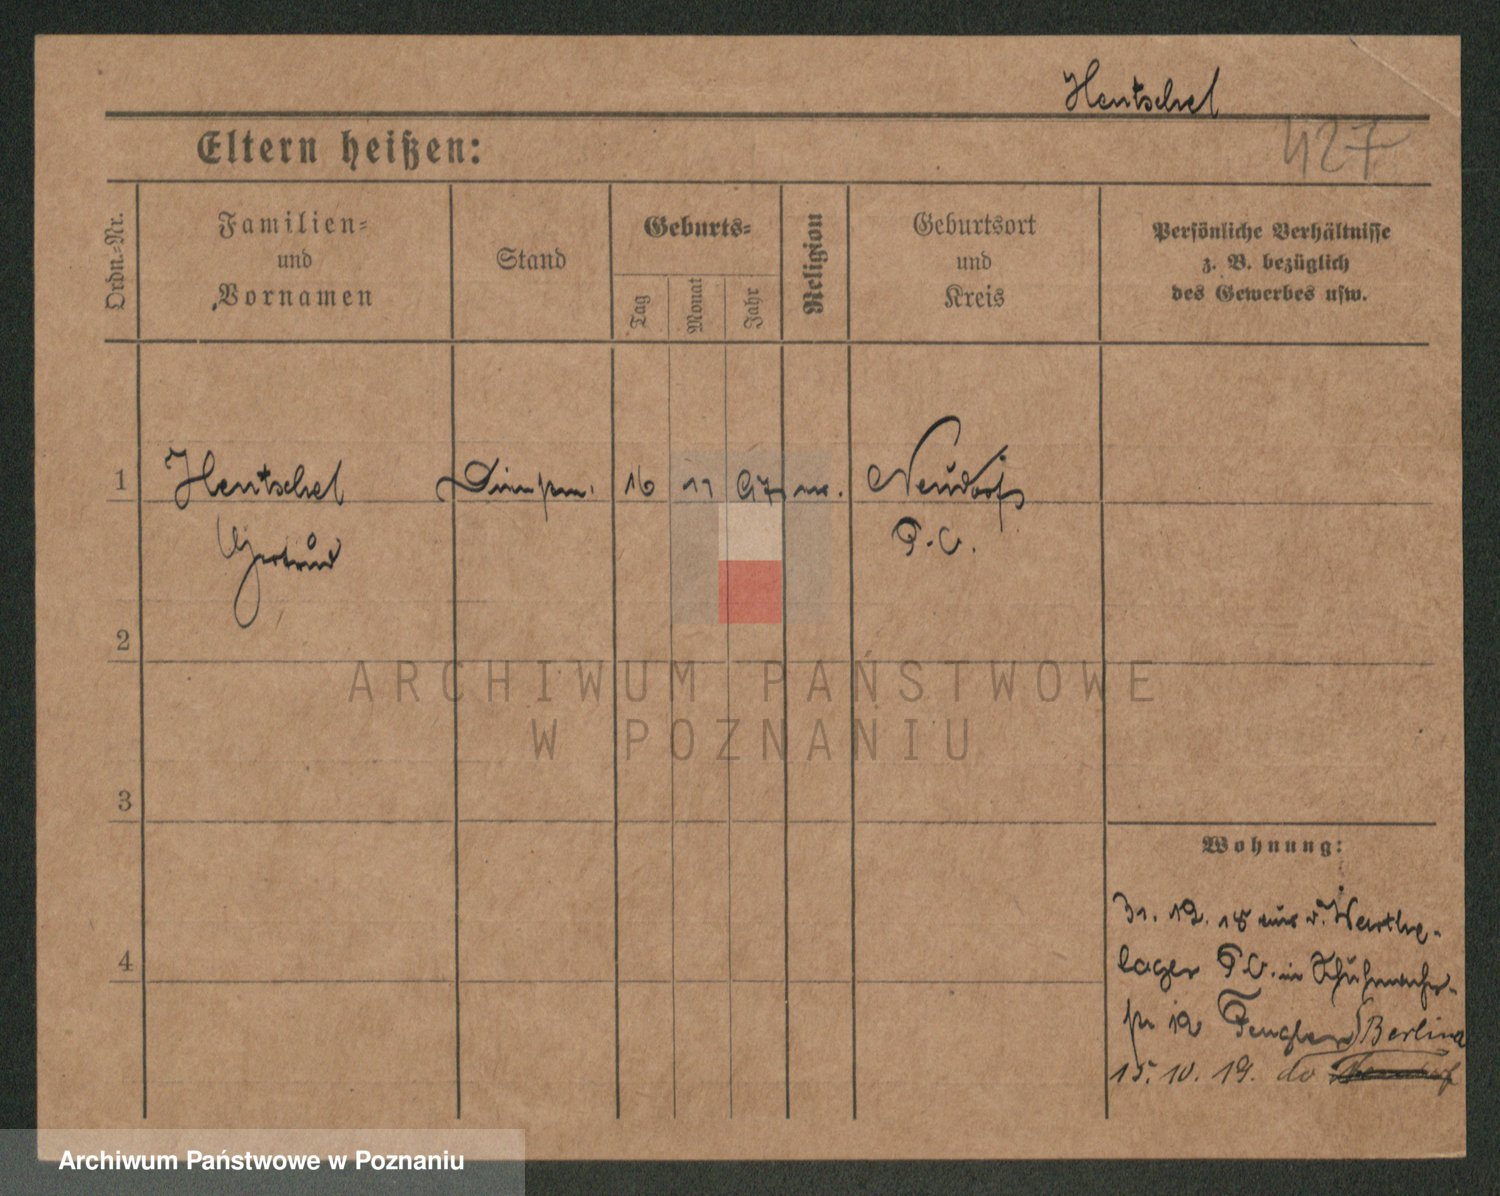 Hentschel
427
Eltern heißen:
Ordn.-Nr.
Familien-
und
Vornamen
Stand
Geburts-
Tag
Monat
Jahr
Religion
Geburtsort
und
Kreis
Persönliche Verhältnisse
z. B. bezüglich
des Gewerbes usw.
1
Hentschel
16
11
97
Neudorf
P. O.
Gertrud
2
ARCHIWUM PAŃSTWOWE
W POZNANIU
3
Wohnung:
31. 12. 18 aus d. Warthe-
lager P O. in Schuhmacher-
str 12 Berlin
15. 10. 19.
4
Archiwum Państwowe w Poznaniu